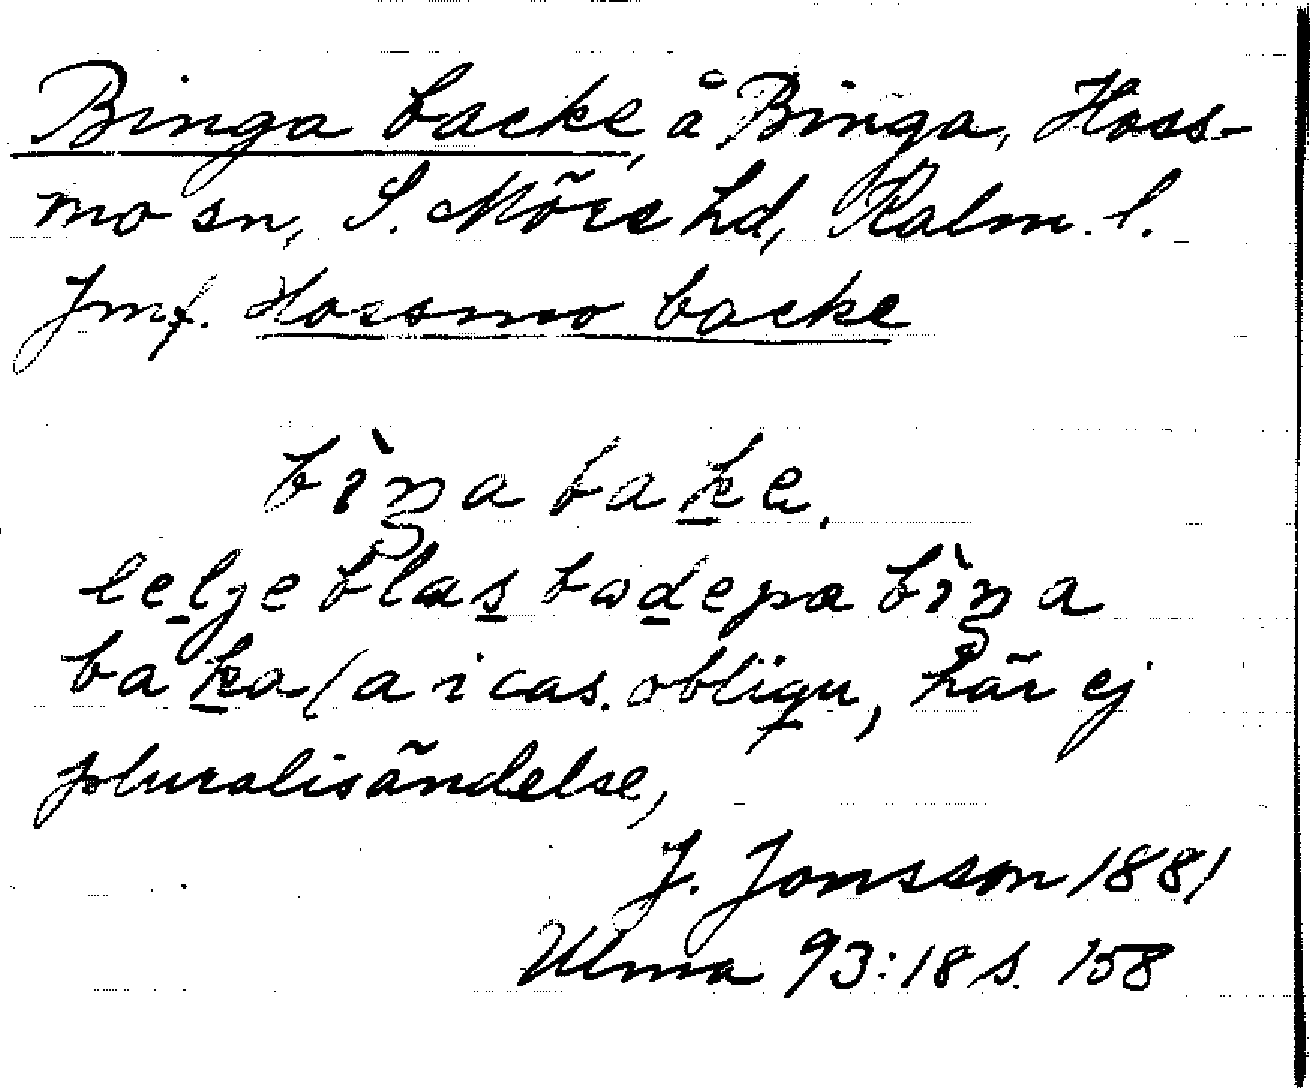 Binga backe, å Binga, Hoss-
mo sn, S. Möre hd, Kalm. l.
Jmf. Hossmo backe
bìŋa bake.
lelje blas bade pa bìŋa
baka (a i cas. obliqu, här ej
pluralisändelse,
J. Jonsson 1881
Ulma 93:18 s. 158